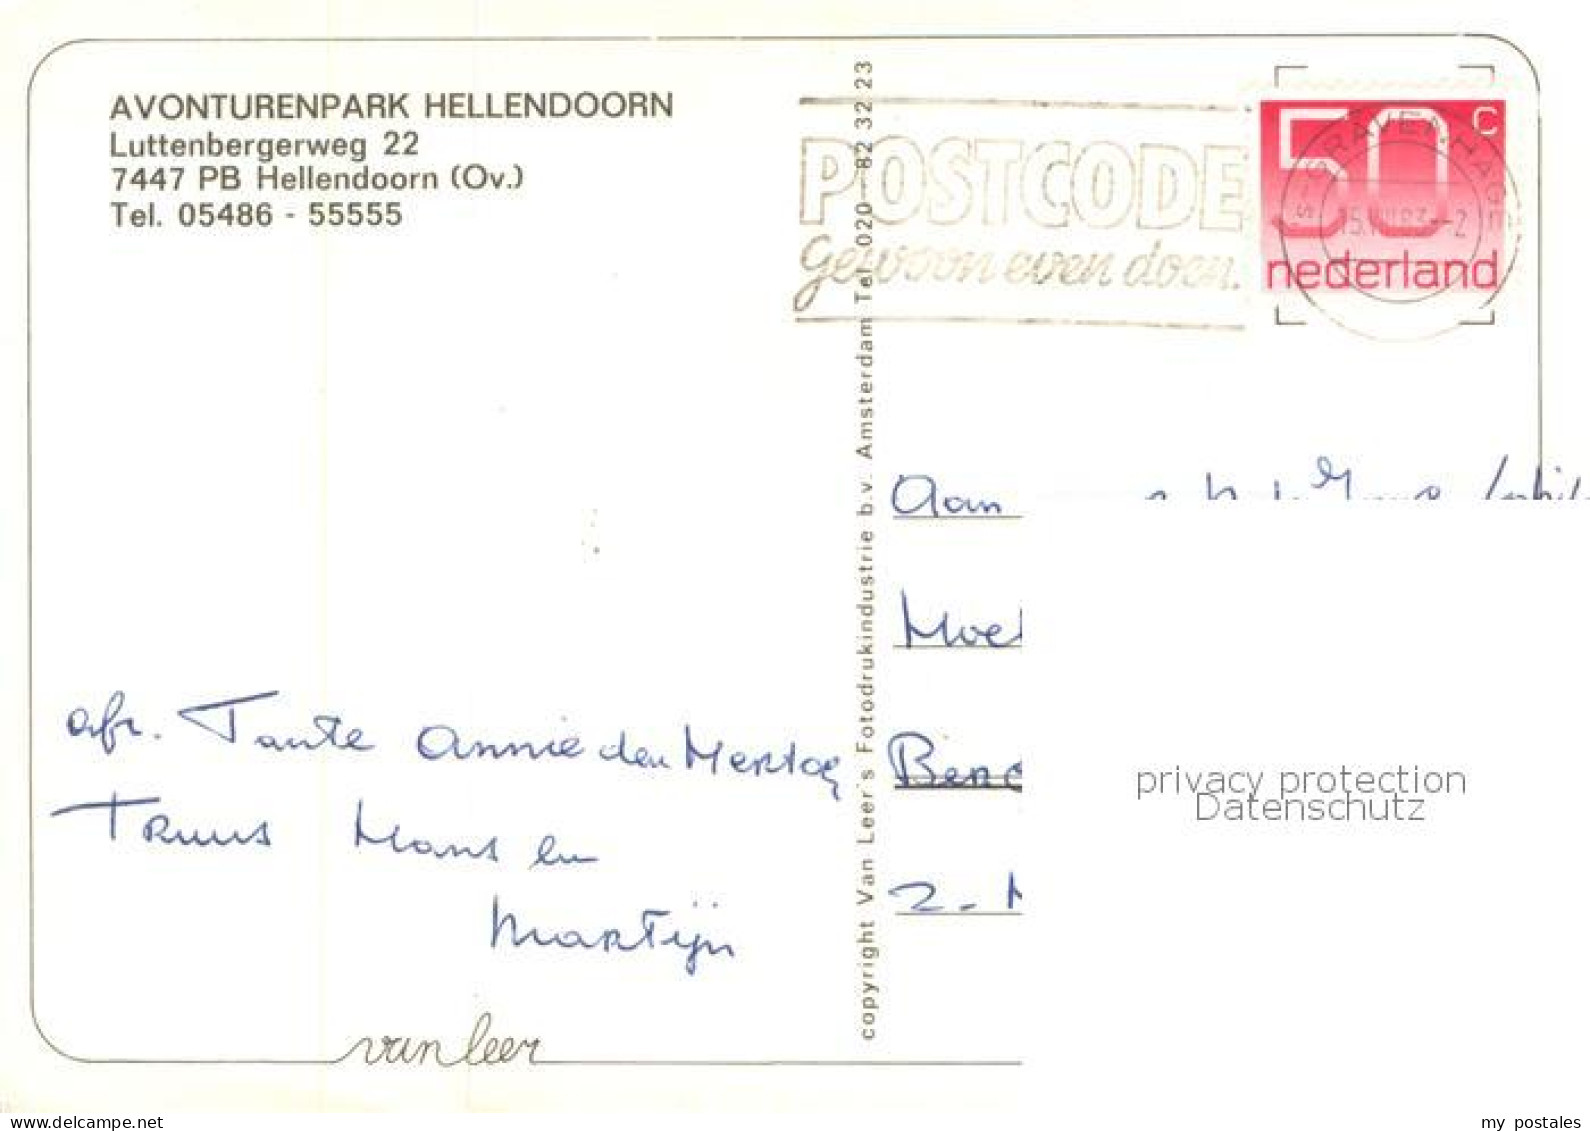 AVONTURENPARK HELLENDOORN
Luttenbergerweg 22
7447 PB Hellendoorn (Ov.)
Tel. 05486 - 55555
POSTCODE
gewoon even doen.
50 c
nederland
'S-GRAVENHAGE
copyright Van Leer's Fotodrukindustrie b.v. Amsterdam Tel. 020 - 82 32 23
Aan
2-
afz. Tante Annie den Hertog
Truus Hans en
Martijn
van leer
privacy protection
Datenschutz
www.delcampe.net
my postales